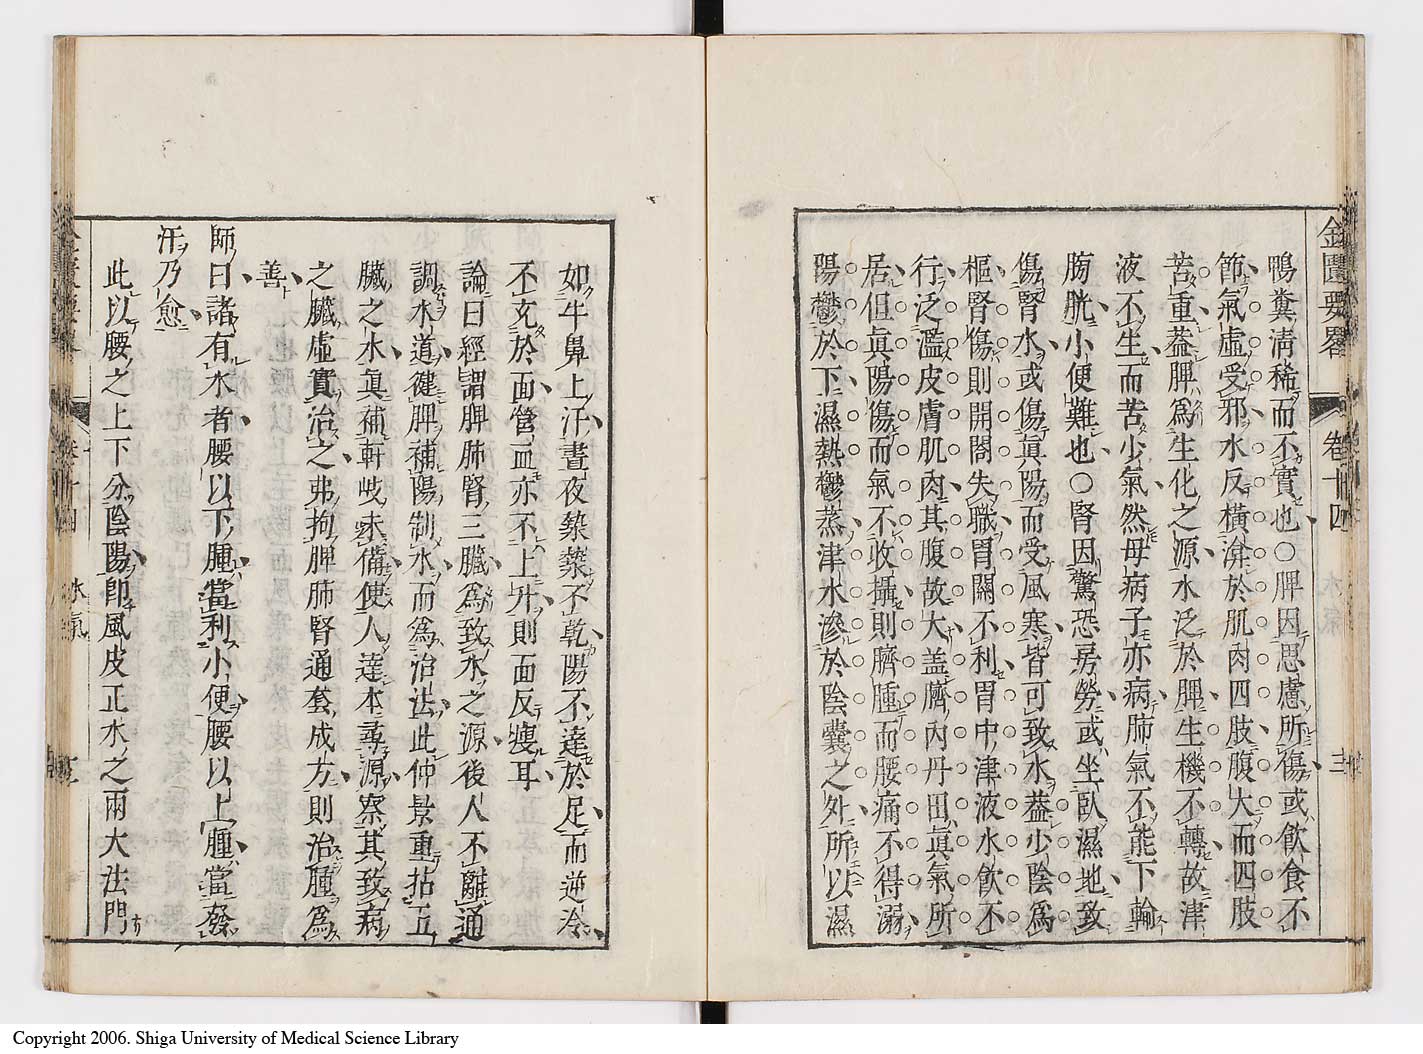 金匱要畧 卷十四 水氣 三
鴨糞淸稀而不實也○脾因思慮所傷或飮食不
節氣虛受邪水反橫渰於肌肉四肢腹大而四肢
苦重葢脾爲生化之源水泛於脾生機不轉故津
液不生而苦少氣然母病子亦病肺氣不能下輸
膀胱小便難也○腎因驚恐房勞或坐臥濕地致
傷腎水或傷眞陽而受風寒皆可致水葢少陰爲
樞腎傷則開閤失職胃關不利胃中津液水飮不
行泛濫皮膚肌肉其腹故大盖臍內丹田眞氣所
居但眞陽傷而氣不收攝則臍腫而腰痛不得溺
陽鬱於下濕熱鬱蒸津水滲於陰囊之外所以濕
如牛鼻上汗晝夜漐漐不乾陽不達於足而逆冷
不充於面管血亦不上升則面反瘦耳
論曰經謂脾肺腎三臟爲致水之源後人不離通
調水道健脾補陽制水而爲治法此仲景重拈五
臟之水眞補軒岐未備使人達本尋源察其致病
之臟虛實治之弗拘脾肺腎通套成方則治腫爲
善
師曰諸有水者腰以下腫當利小便腰以上腫當發
汗乃愈
此以腰之上下分陰陽卽風皮正水之兩大法門
卷十四 水氣
Copyright 2006. Shiga University of Medical Science Library